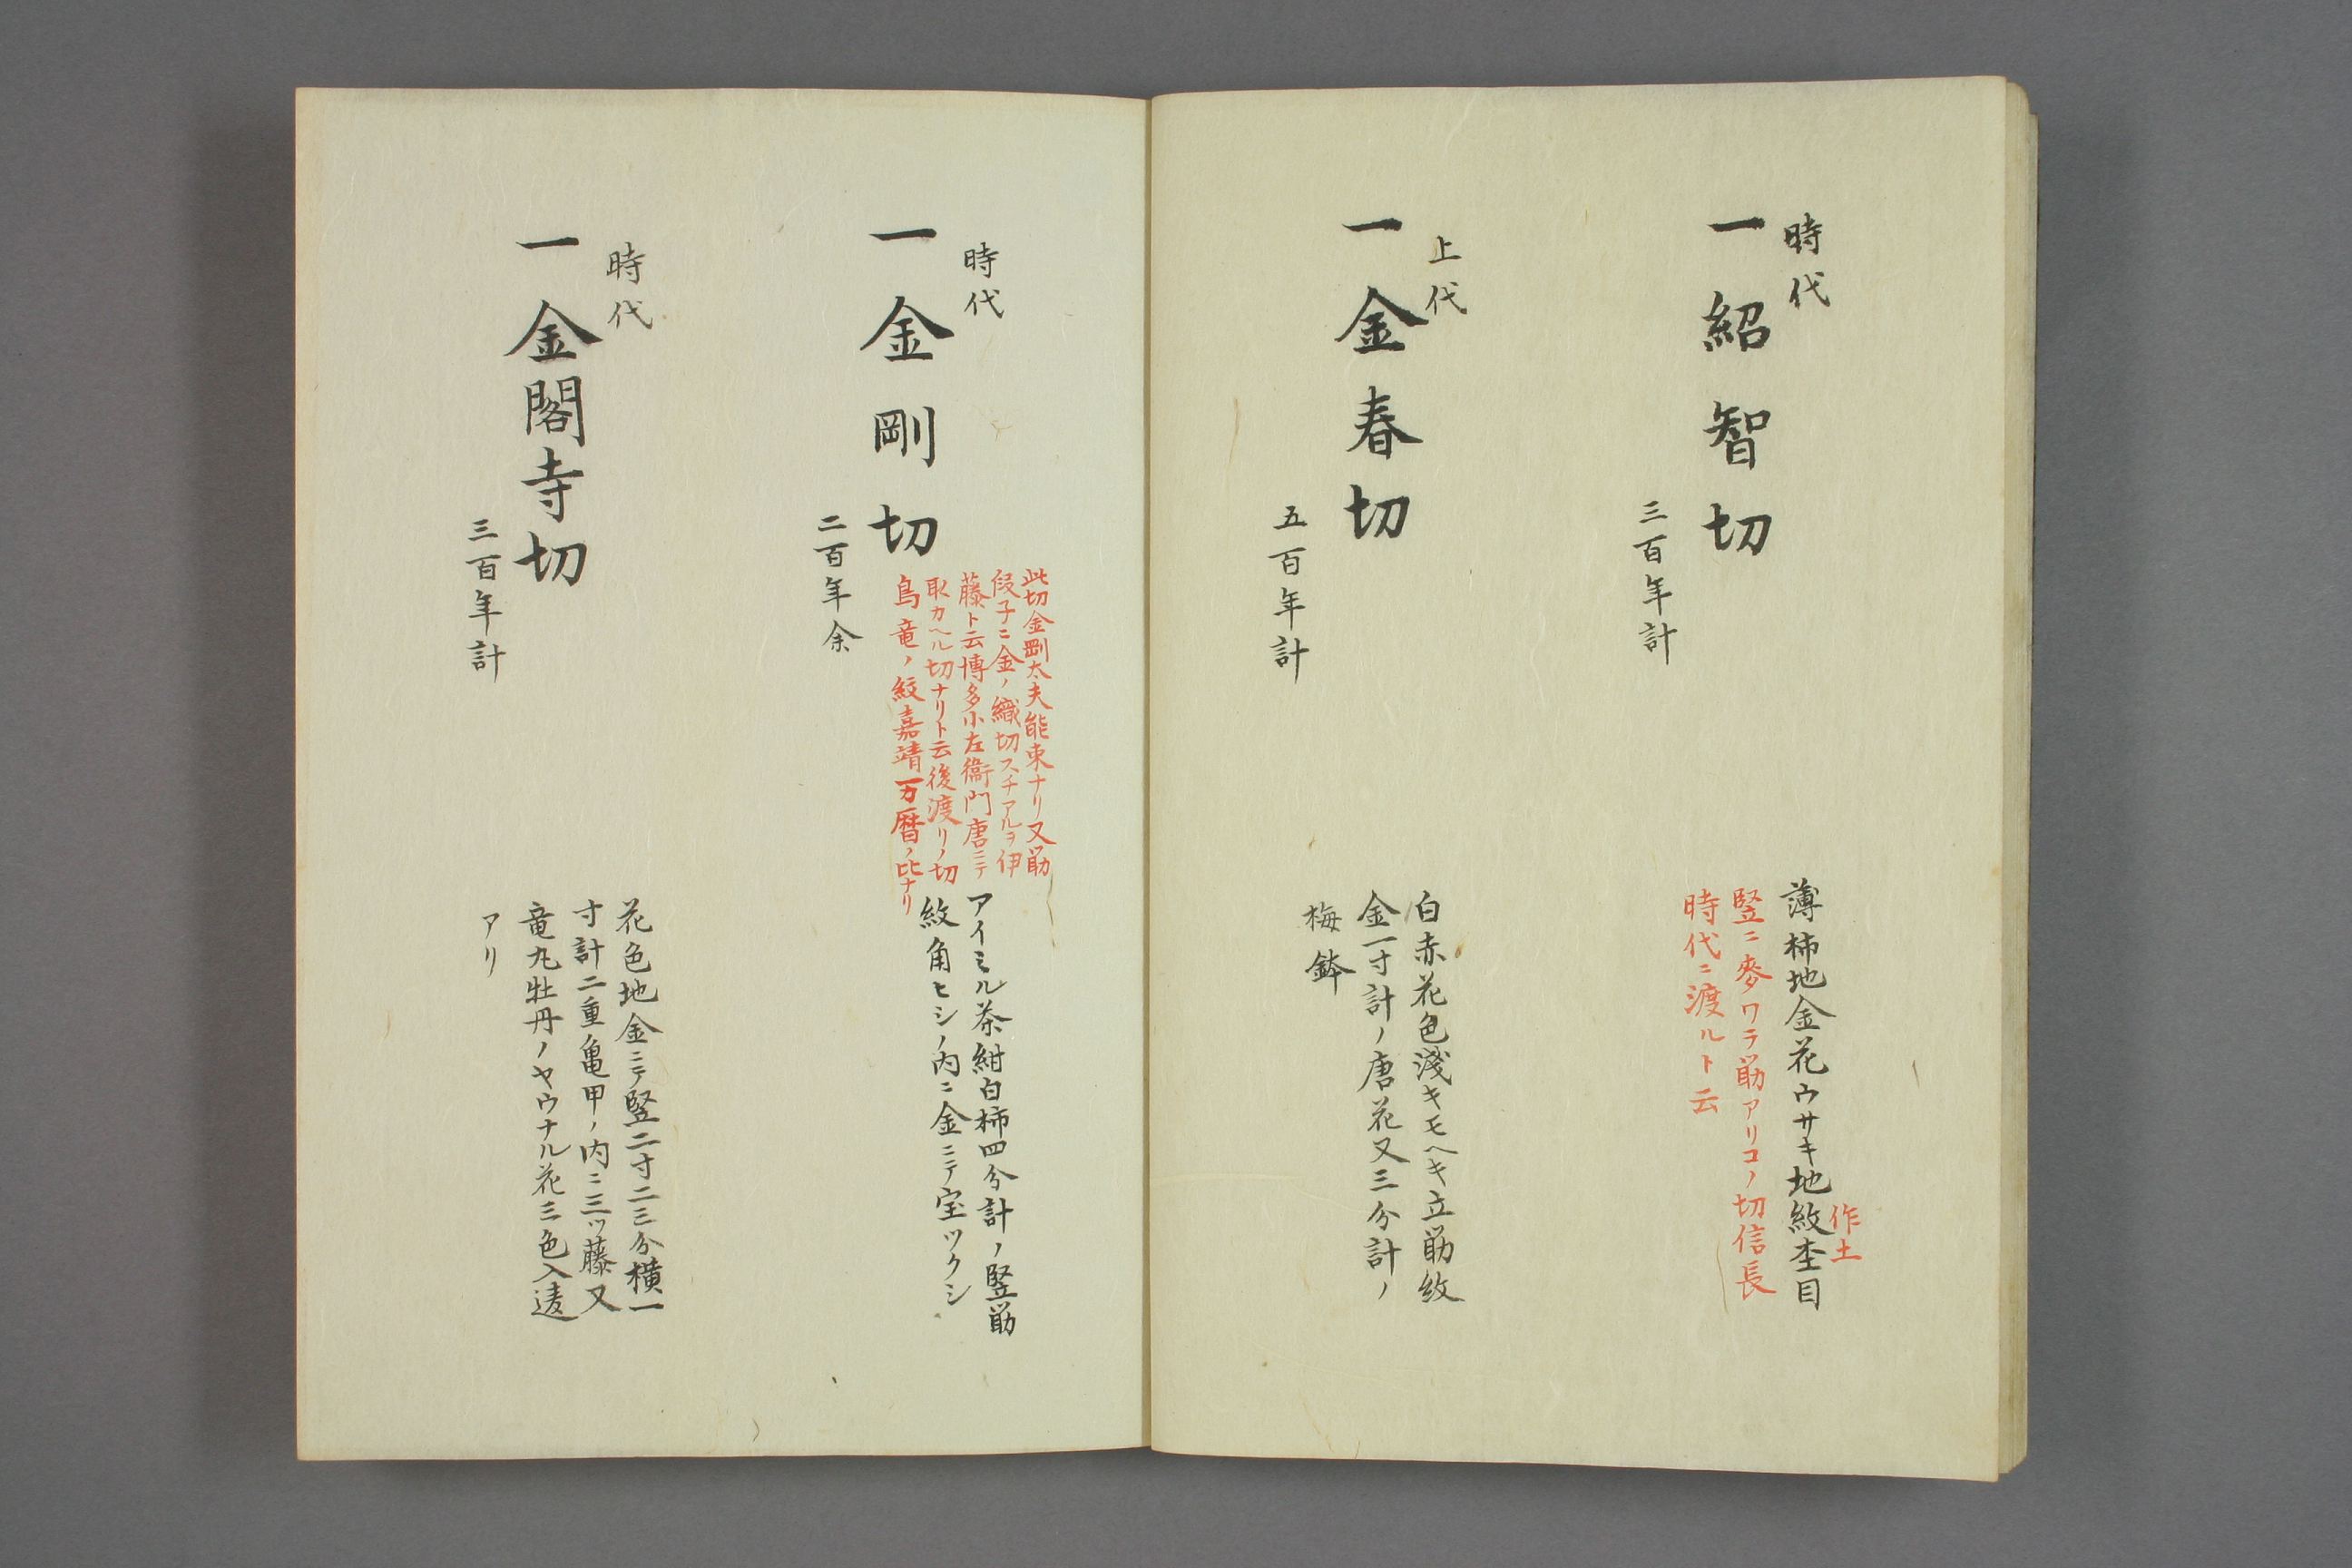 時代
一紹智切
三百年計
薄柿地金花ウサキ地紋杢目
作土
竪ニ麥ワラ筋アリコノ切信長
時代ニ渡ルト云
上代
一金春切
五百年計
白赤花色淺キモヘキ立筋紋
金一寸計ノ唐花又三分計ノ
梅鉢
時代
一金剛切
二百年余
此切金剛太夫能束ナリ又筋
段子ニ金ノ織切スチアルヲ伊
藤ト云博多小左衞門唐ニテ
取カヘル切ナリト云後渡リノ切
鳥竜ノ紋嘉靖万暦ノ比ナリ
アイミル茶紺白柿四分計ノ竪筋
紋角ヒシノ内ニ金ニテ宝ツクシ
時代
一金閣寺切
三百年計
花色地金ニテ竪二寸二三分横一
寸計二重亀甲ノ内ニ三ツ藤又
竜丸牡丹ノヤウナル花三色入違
アリ